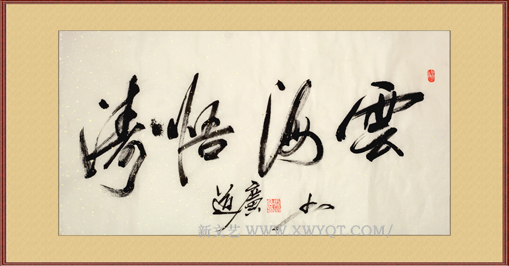 雲海悟濤
廣
新文艺 WWW.XWYQT.COM/